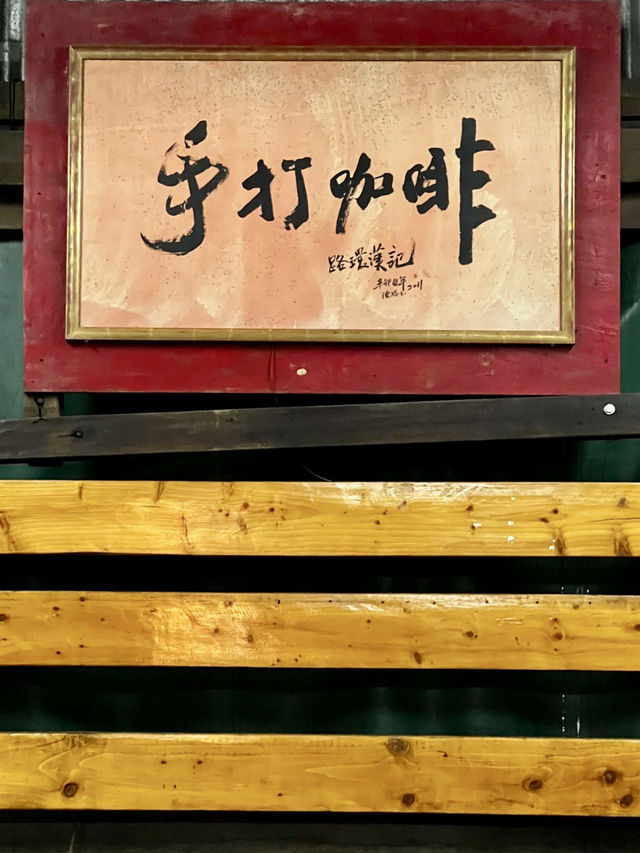 手打咖啡
路環漢記
辛卯
2011